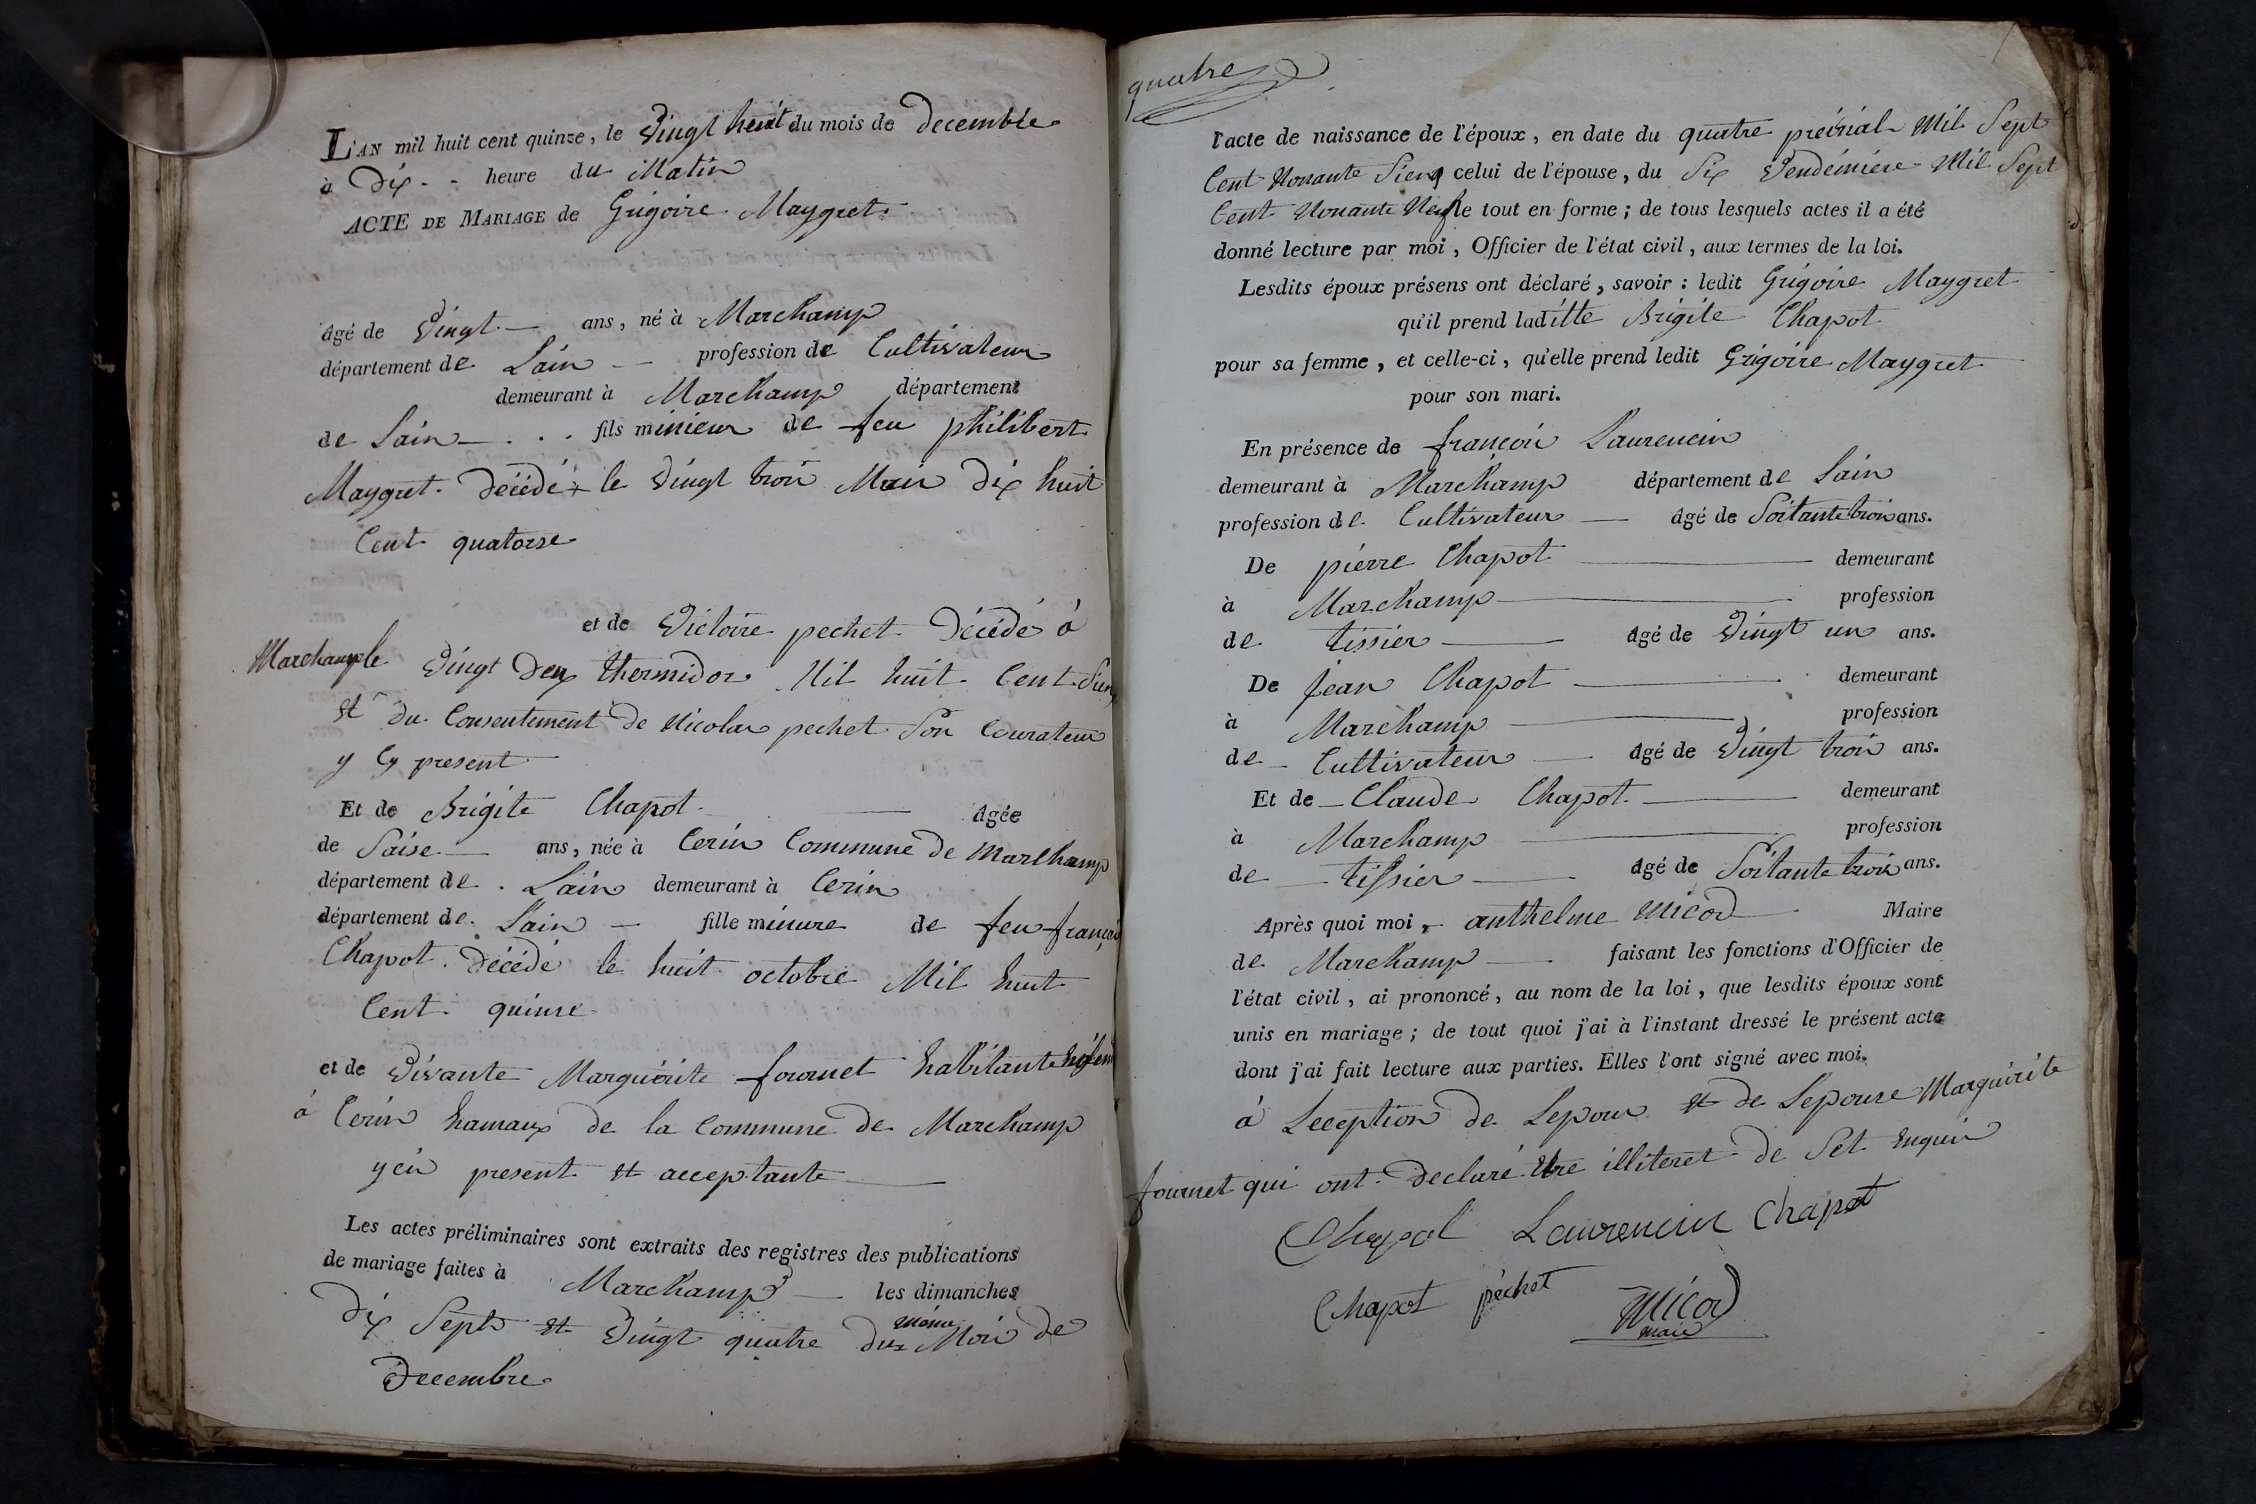 L'AN mil huit cent quinze, le Vingt huit du mois de decembre
à Dix heure du Matin
ACTE DE MARIAGE de Grigoire Maygret
âgé de Vingt ans, né à Marchamp
département de Lain profession de Cultivateur
demeurant à Marchamp département
de Lain fils minieur de feu philibert
Maygret décédé le Vingt troi Mai Dix huit
Cent quatorse
et de Victoire pechet Décédé à
Marchamp le Vingt Deux thermidor Mil huit Cent
et du Consentement de Nicolas pechet Son Courateur
y Cy present
Et de Brigite Chapot âgée
de Saise ans, née à Cerin Commune de Marchamp
département de Lain demeurant à Cerin
département de Lain fille minure de feu françoi
Chapot Décédé le huit octobre Mil huit
Cent quinse
et de Vivante Marguérite fournet habitante
à Cerin hamaux de la Commune de Marchamp
y ci present et acceptante
Les actes préliminaires sont extraits des registres des publications
de mariage faites à Marchamp les dimanches
Dix Sept et Vingt quatre du même Moi de
Decembre
quatre
l'acte de naissance de l'époux, en date du quatre preirial Mil Sept
Cent Nonante Sienq celui de l'épouse, du Six Vendémiere Mil Sept
Cent Nonante Neuf le tout en forme; de tous lesquels actes il a été
donné lecture par moi, Officier de l'état civil, aux termes de la loi.
Lesdits époux présens ont déclaré, savoir : ledit Grigoire Maygret
qu'il prend laditte Brigite Chapot
pour sa femme, et celle-ci, qu'elle prend ledit Grigoire Maygret
pour son mari.
En présence de françoi Laurencin
demeurant à Marchamp département de Lain
profession de Cultivateur âgé de Soitante troi ans.
De pierre Chapot demeurant
à Marchamp profession
de tissier âgé de Vingt un ans.
De Jean Chapot demeurant
à Marchamp profession
de Cultivateur âgé de Vingt troi ans.
Et de Claude Chapot demeurant
à Marchamp profession
de tissier âgé de Soitante troi ans.
Après quoi moi, anthelme Micod Maire
de Marchamp faisant les fonctions d'Officier de
l'état civil, ai prononcé, au nom de la loi, que lesdits époux sont
unis en mariage; de tout quoi j'ai à l'instant dressé le présent acte
dont j'ai fait lecture aux parties. Elles l'ont signé avec moi.
à Leception de Lepoux et de Lepouse Marguirite
fournet qui ont Declaré Etre illiteret de Set Enqui
Chapot Laurencin Chapot
Chapot pechet Micod
maire